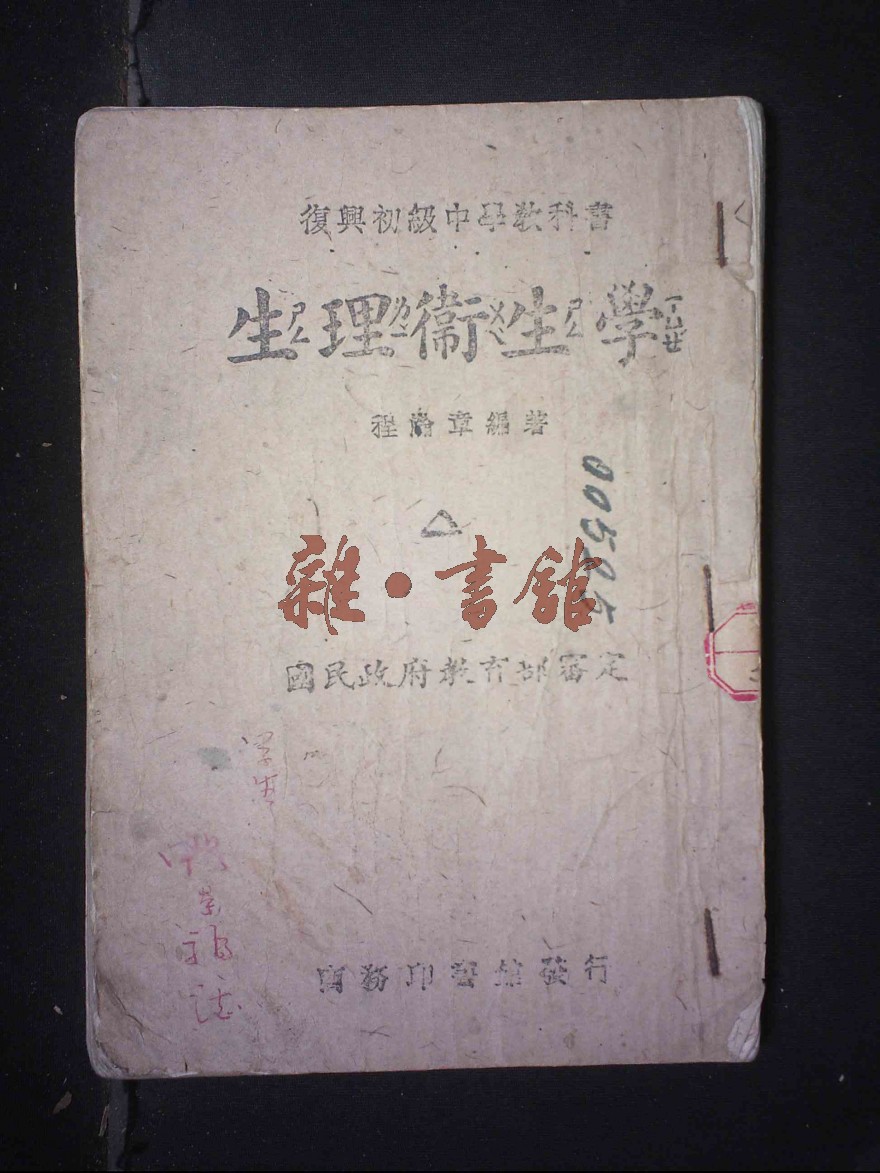 復興初級中學教科書
生理衞生學
ㄕㄥ ㄌㄧ ㄨㄟ ㄕㄥ ㄒㄩㄝ
程瀚章編著
雜·書館
國民政府教育部審定
商務印書館發行